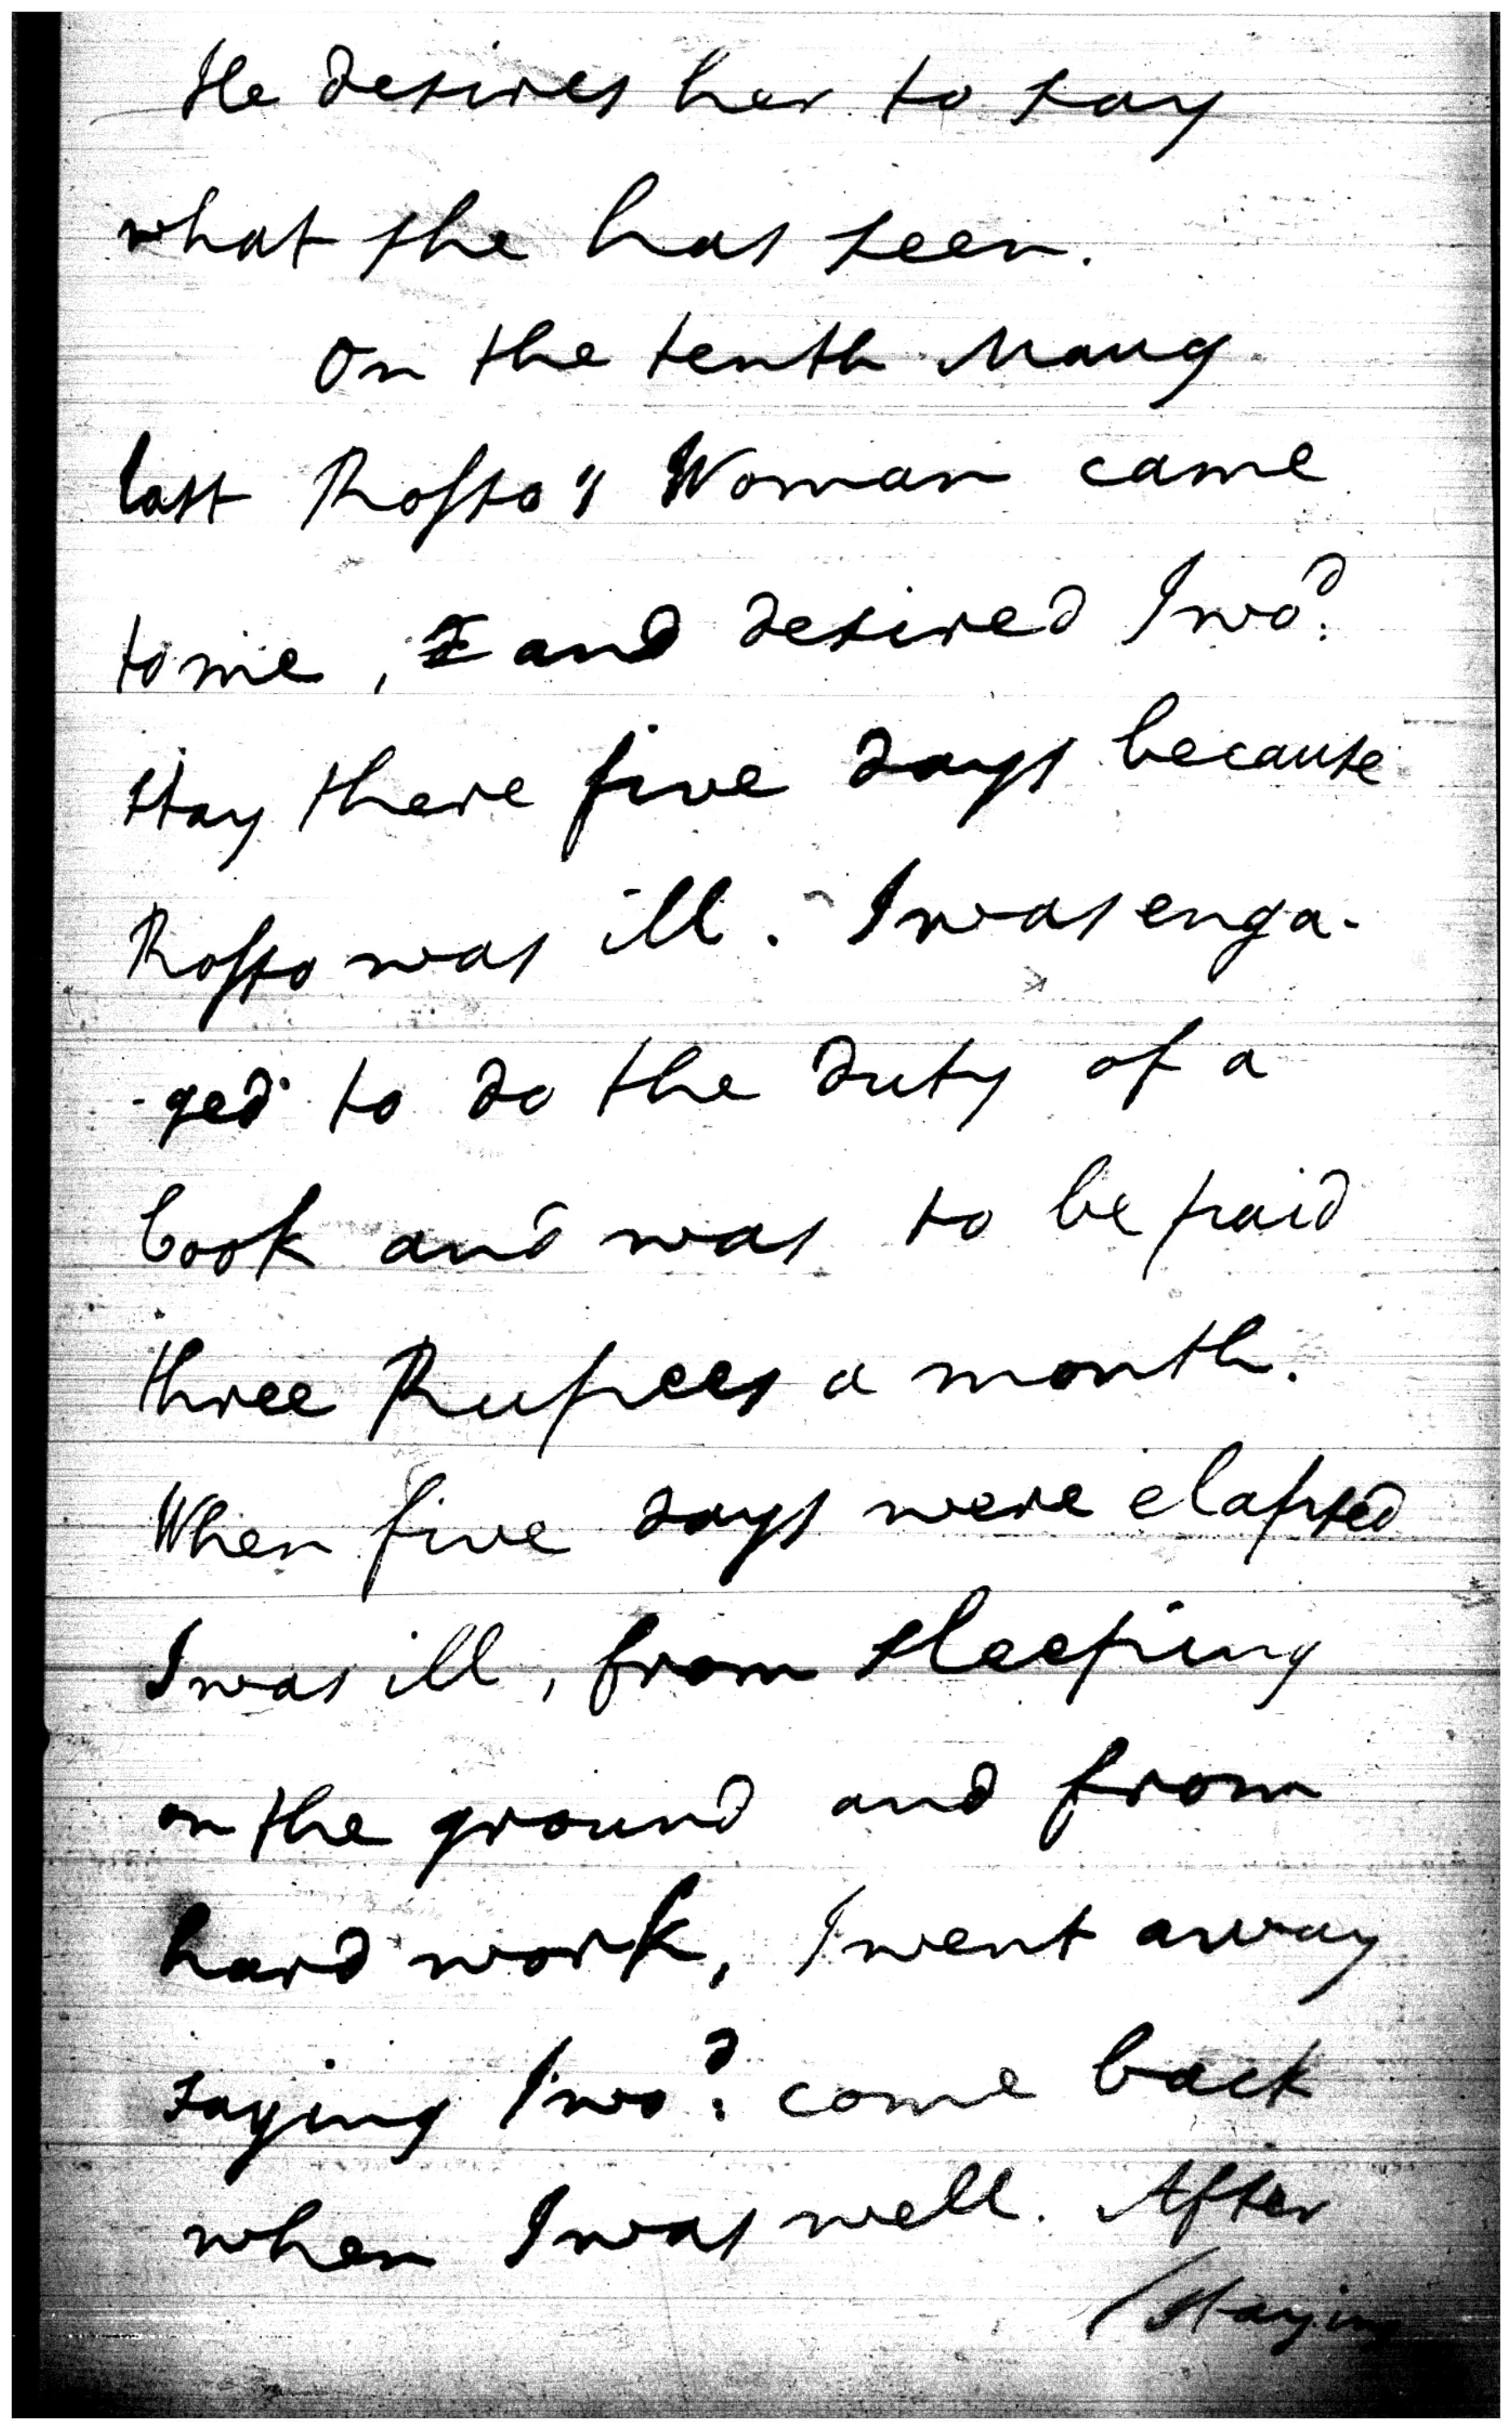 He desires her to say
what she has seen.
On the tenth Maug
last Rosso's Woman came
to me, I and desired I wo^d.
stay there five days because
Rosso was ill. I was enga-
-ged to do the duty of a
Cook and was to be paid
three Rupees a month.
When five days were elapsed
I was ill, from sleeping
on the ground and from
hard work, I went away
saying I wo^d. come back
when I was well. After
/Staying